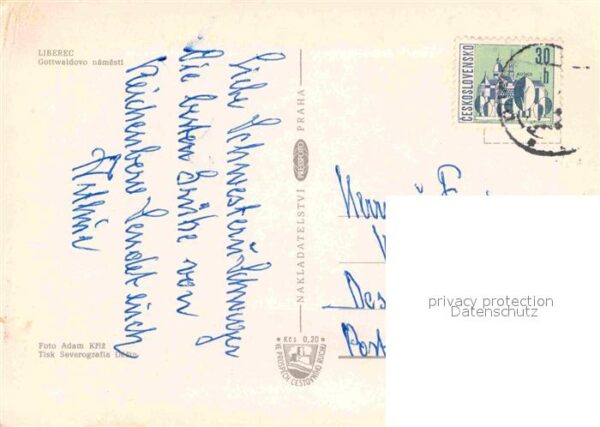 LIBEREC
Gottwaldovo náměstí
Liebe Schwester u. Schwager
die besten Grüße von
Reichenberg sendet euch
Foto Adam Kříž
Tisk Severografia Děčín
NAKLADATELSTVÍ PRESSFOTO PRAHA
Kčs 0,20
VE PROSPĚCH CESTOVNÍHO RUCHU
ČESKOSLOVENSKO
30
h
Herrn
Des
Post
privacy protection
Datenschutz